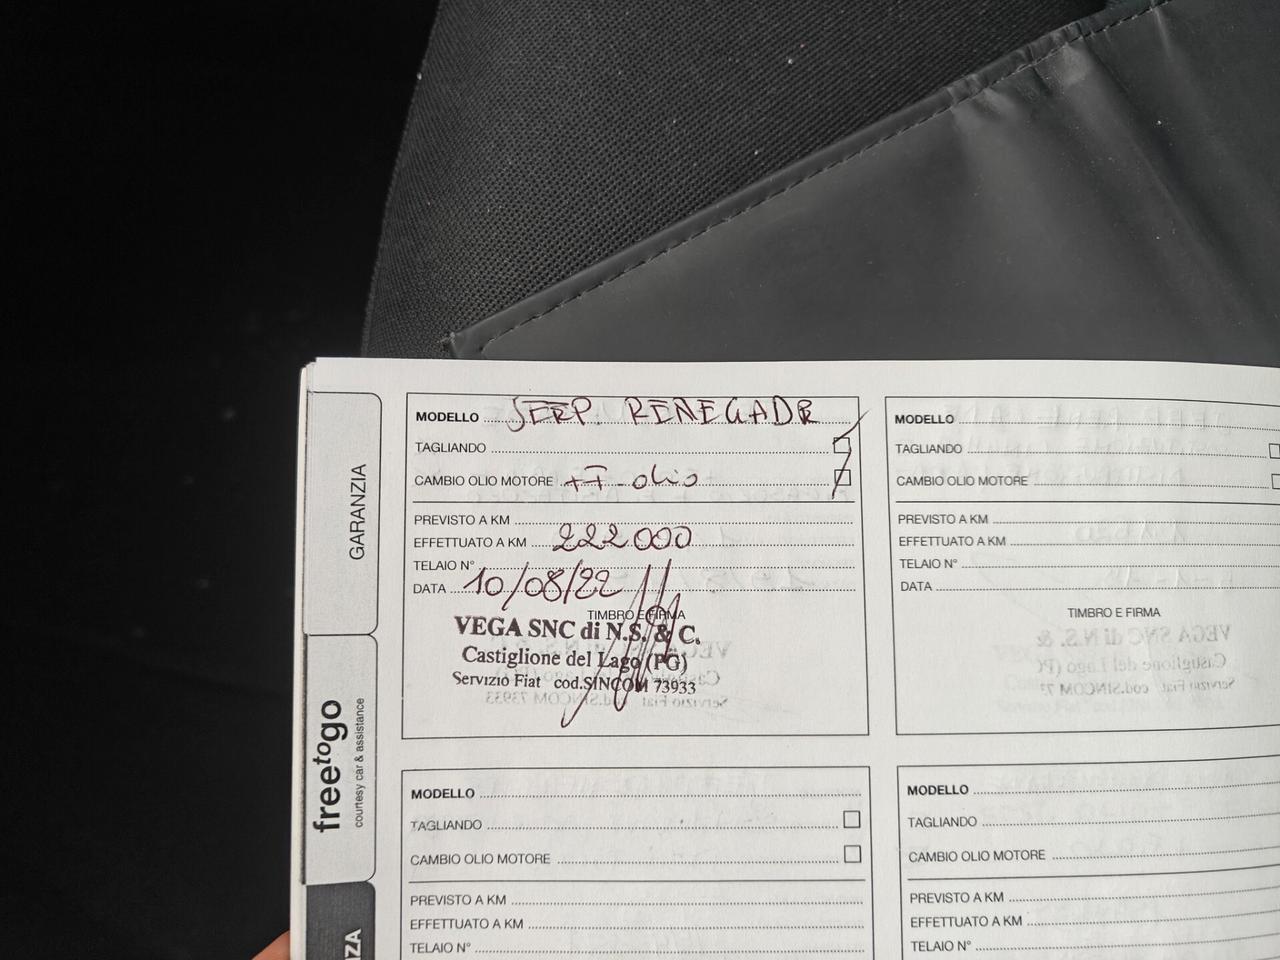 MODELLO JEEP. RENEGADE
TAGLIANDO
CAMBIO OLIO MOTORE ++ olio
PREVISTO A KM
EFFETTUATO A KM 222000
TELAIO N°
DATA 10/08/22
TIMBRO E FIRMA
VEGA SNC di N.S. & C.
Castiglione del Lago (PG)
Servizio Fiat cod.SINCOM 73933
MODELLO
TAGLIANDO
CAMBIO OLIO MOTORE
PREVISTO A KM
EFFETTUATO A KM
TELAIO N°
DATA
TIMBRO E FIRMA
MODELLO
TAGLIANDO
CAMBIO OLIO MOTORE
PREVISTO A KM
EFFETTUATO A KM
TELAIO N°
MODELLO
TAGLIANDO
CAMBIO OLIO MOTORE
PREVISTO A KM
EFFETTUATO A KM
TELAIO N°
GARANZIA
freetogo
courtesy car & assistance